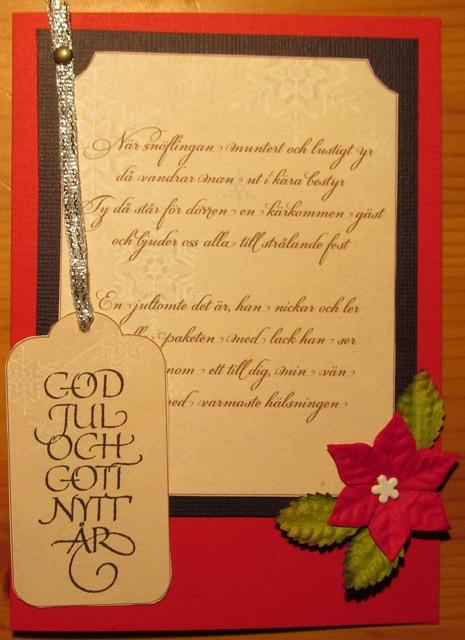 När snöflingan muntert och lustigt yr
då vandrar man ut i kära bestyr
Ty då står för dörren en kärkommen gäst
och bjuder oss alla till strålande fest
En jultomte det är, han nickar och ler
paketen med lack han ser
ett till dig, min vän
varmaste hälsningen
GOD
JUL
OCH
GOTT
NYTT
ÅR